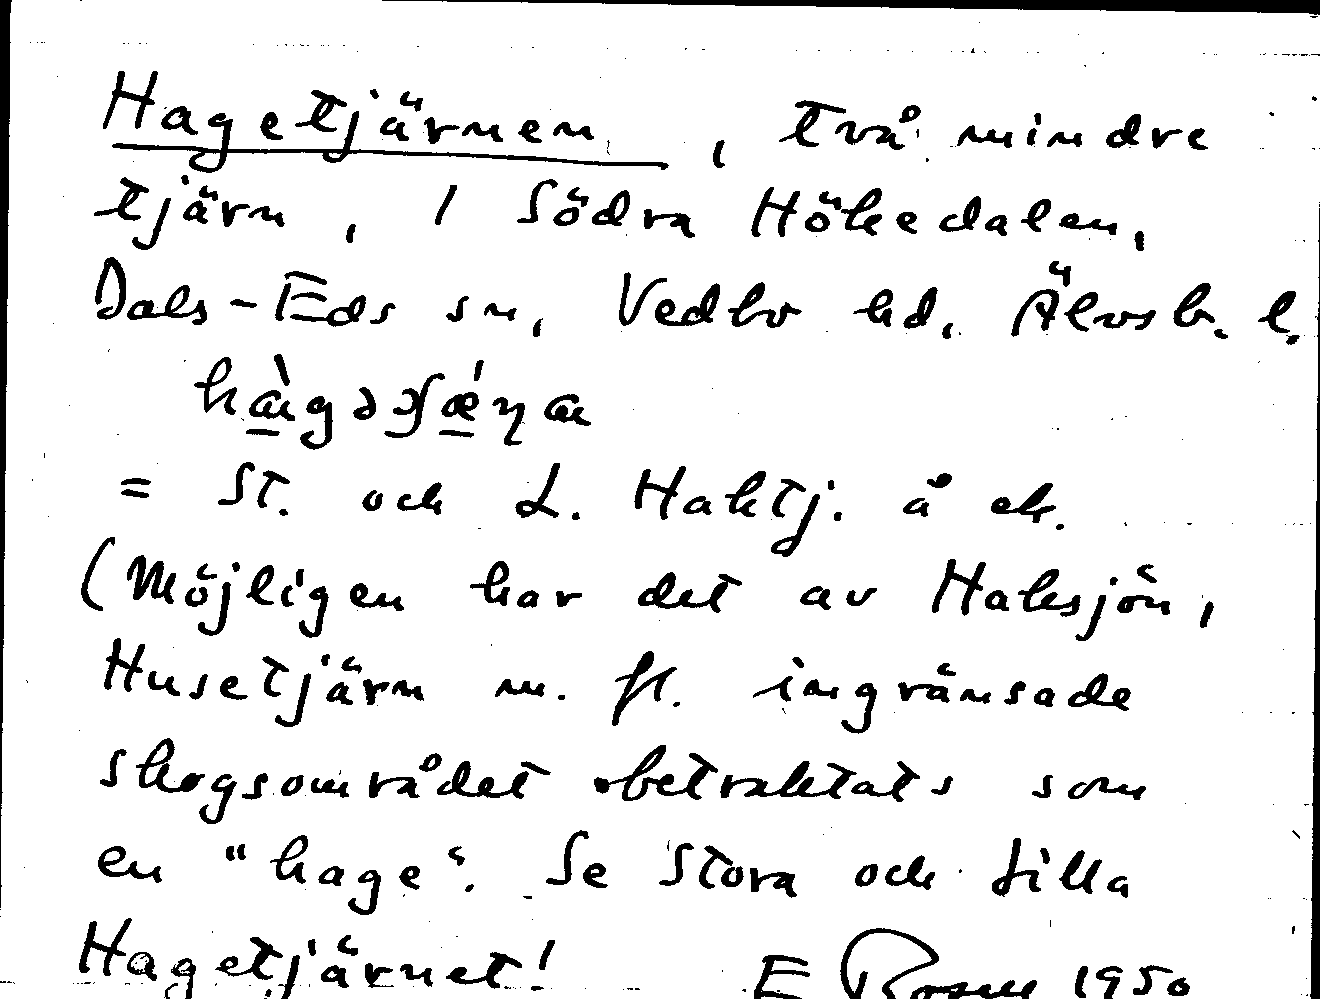 Hagetjärnen, två mindre
tjärn, i Södra Hökedalen,
Dals-Eds sn, Vedbo hd, Älvsb. l.
= St. och L. Haktj. å ek.
(Möjligen har det av Hakesjön,
Husetjärn m. fl. ingränsade
skogsområdet betraktats som
en "hage". Se Stora och Lilla
Hagetjärnet! E Rosell 1950